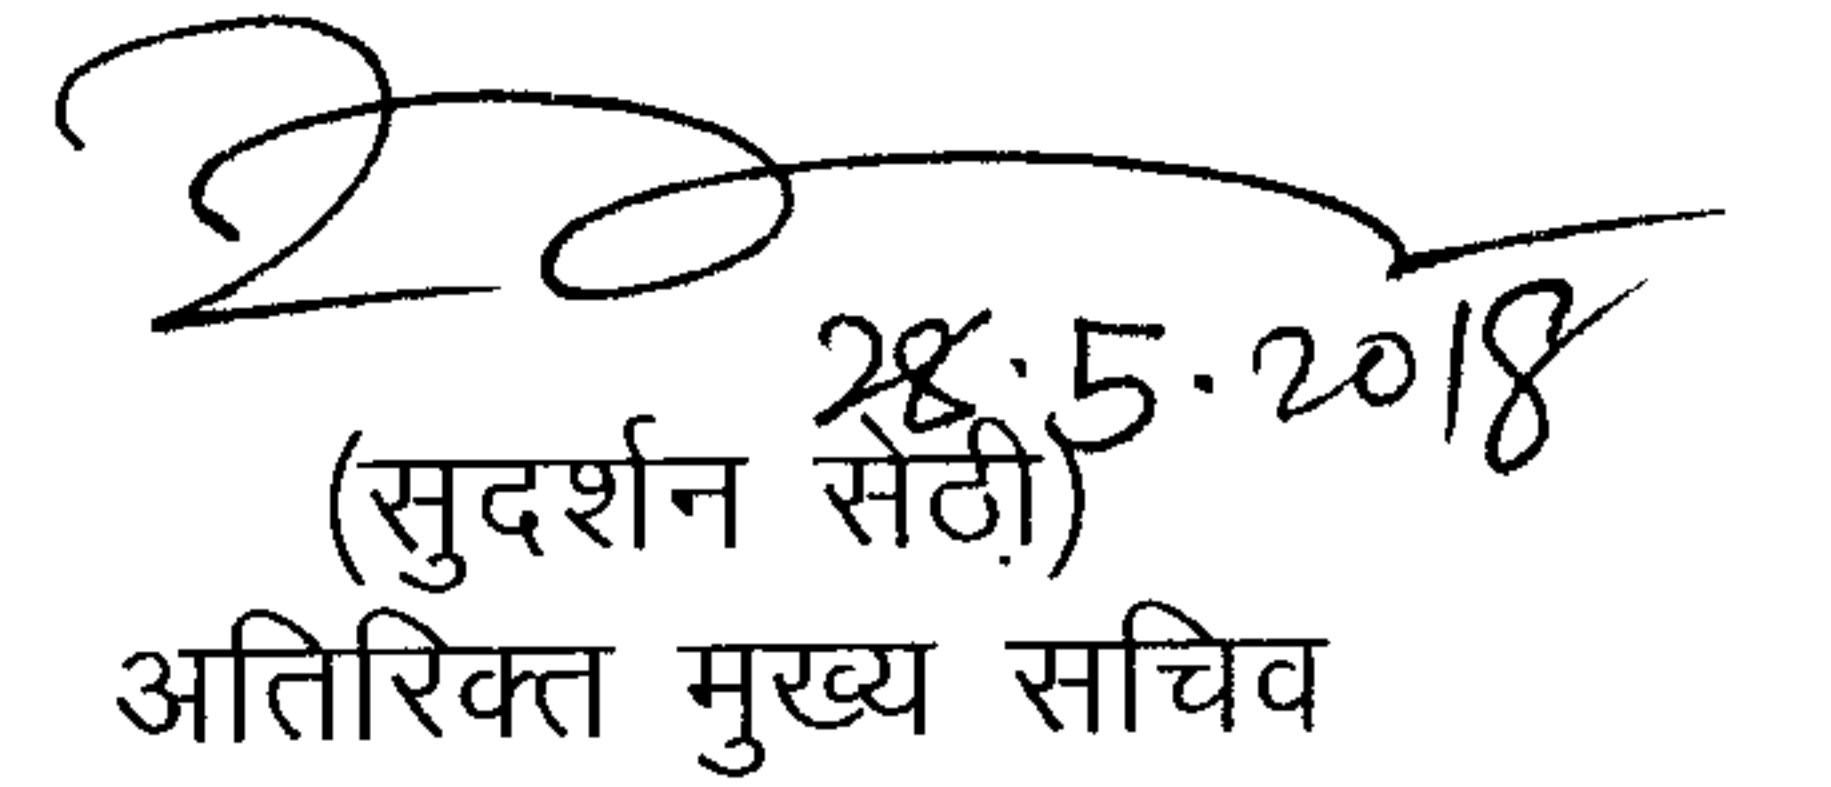 28.5.2018
(सुदर्शन सेठी)
अतिरिक्त मुख्य सचिव